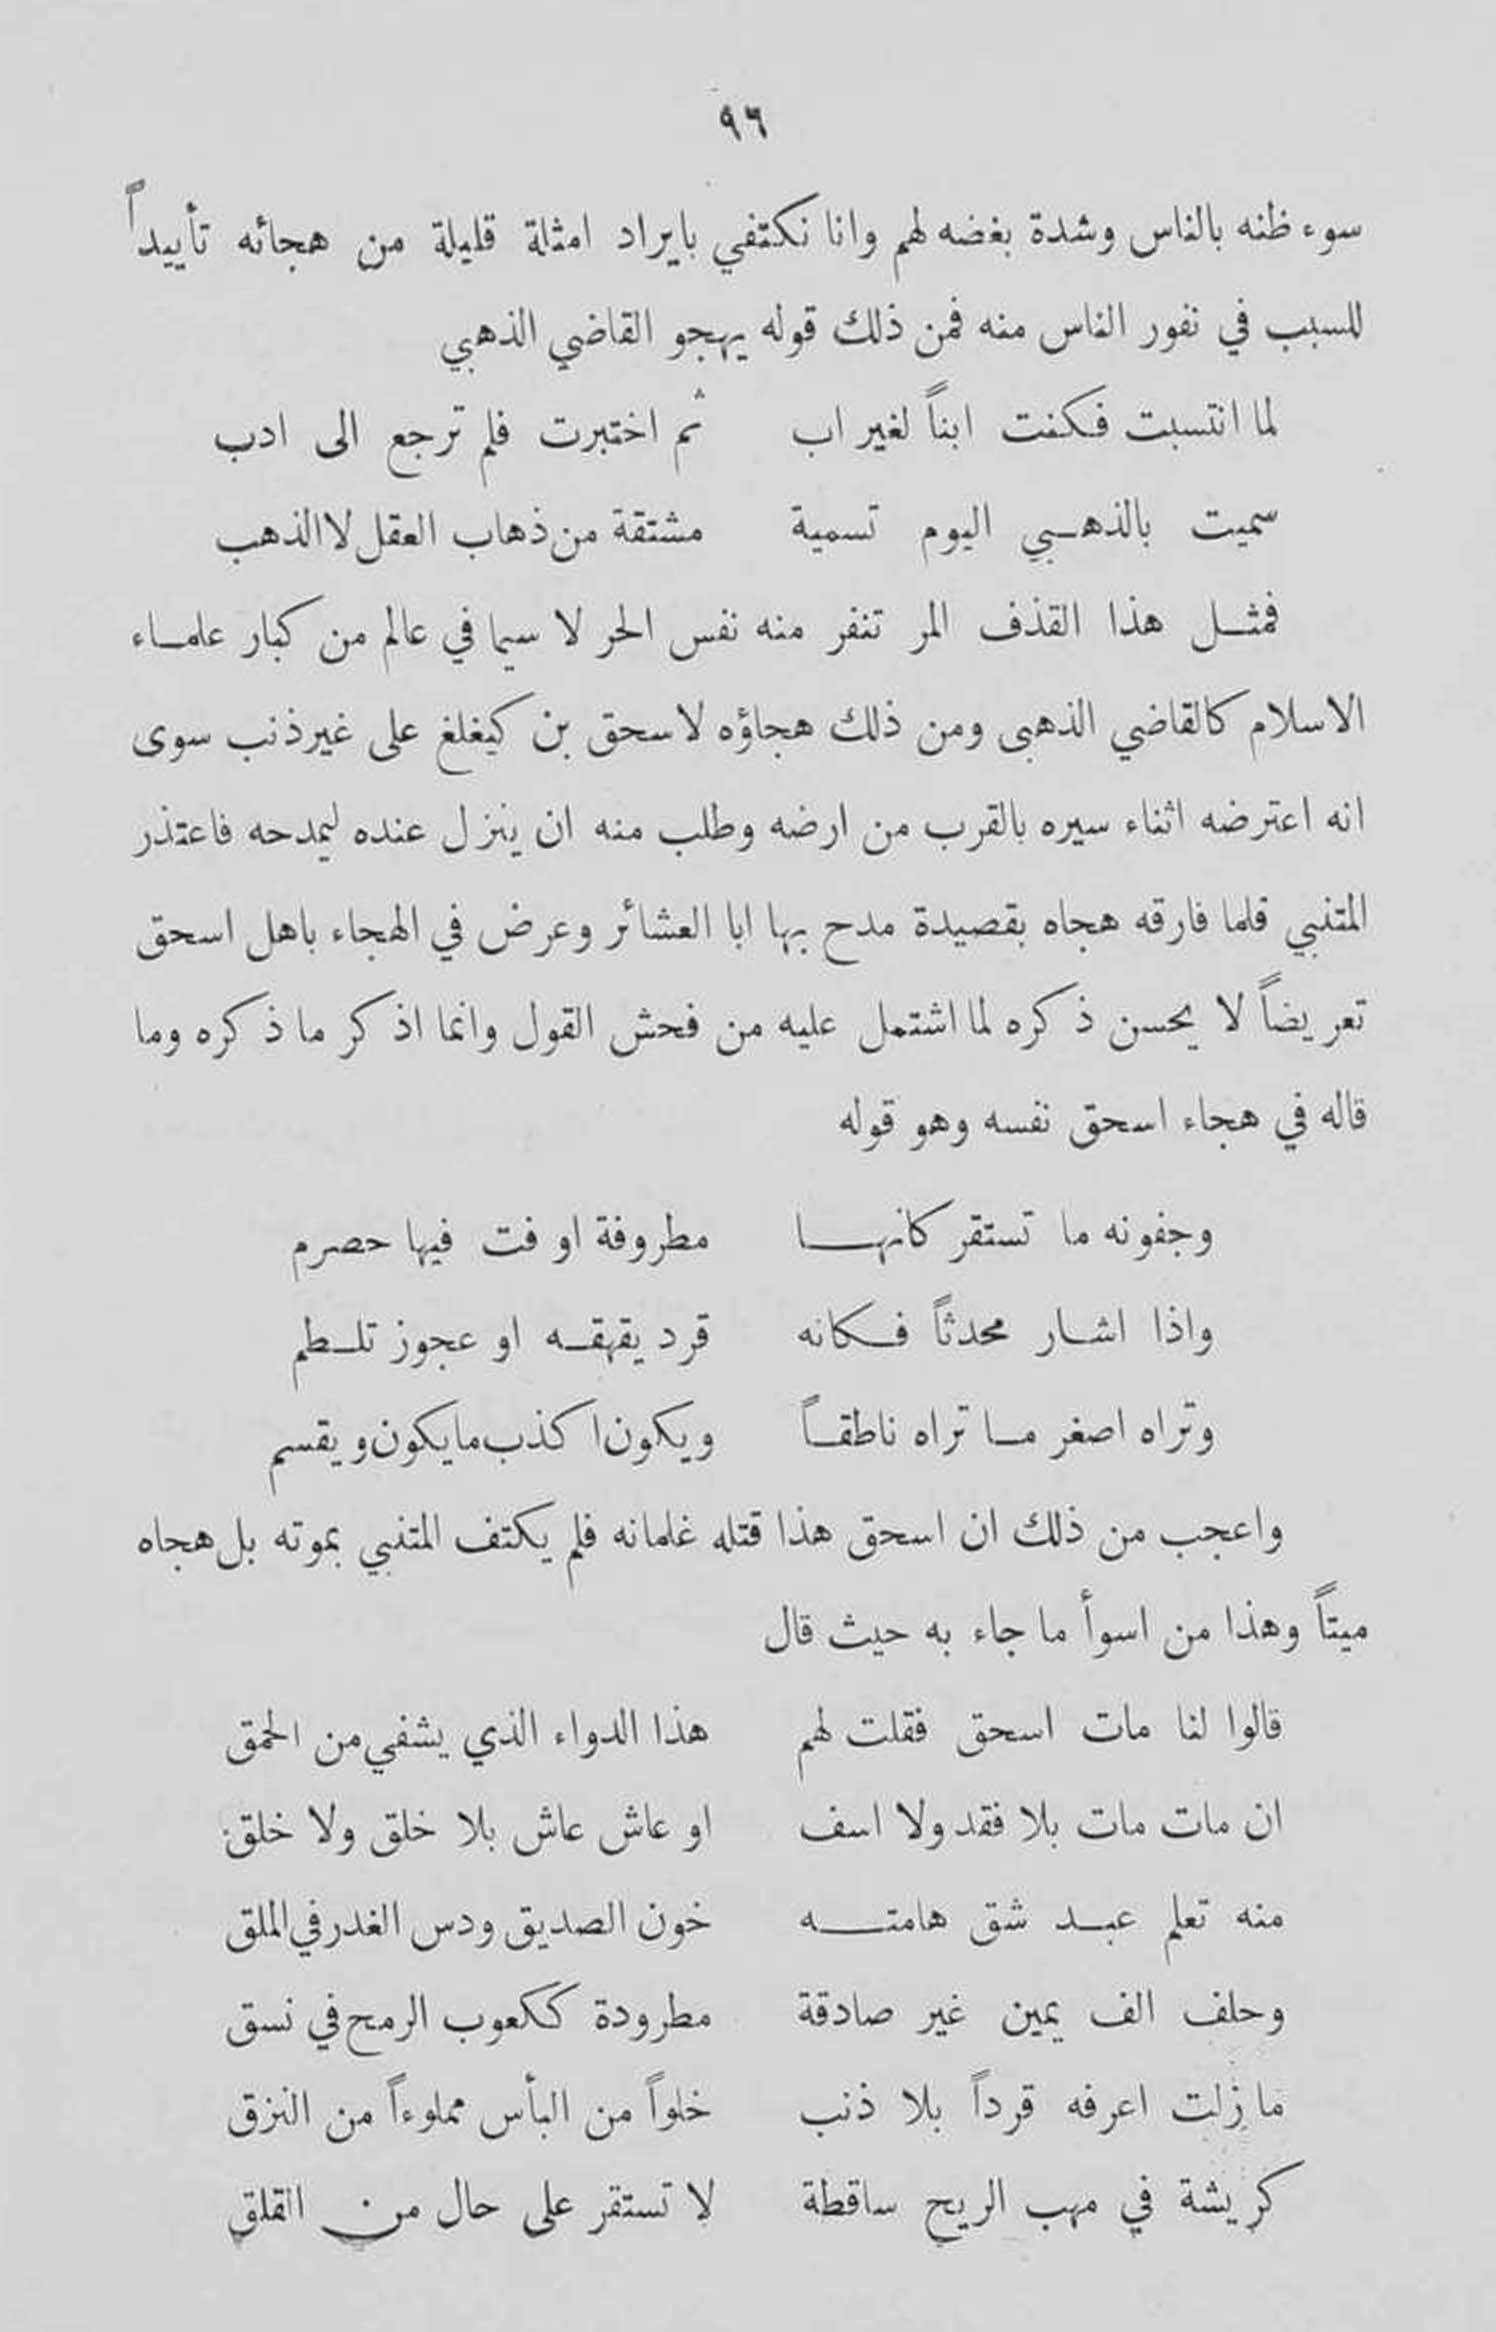 ٩٦
سوء ظنه بالناس وشدة بغضه لهم وانا نكتفي بايراد امثلة قليلة من هجائه تأييداً
للسبب في نفور الناس منه فمن ذلك قوله يهجو القاضي الذهبي
لما انتسبت فكنت ابناً لغير اب ثم اختبرت فلم ترجع الى ادب
سميت بالذهبي اليوم تسمية مشتقة من ذهاب العقل لا الذهب
فمثل هذا القذف المر تنفر منه نفس الحر لا سيما في عالم من كبار علماء
الاسلام كالقاضي الذهبى ومن ذلك هجاؤه لاسحق بن كيغلغ على غير ذنب سوى
انه اعترضه اثناء سيره بالقرب من ارضه وطلب منه ان ينزل عنده ليمدحه فاعتذر
المتنبي فلما فارقه هجاه بقصيدة مدح بها ابا العشائر وعرض في الهجاء باهل اسحق
تعريضاً لا يحسن ذكره لما اشتمل عليه من فحش القول وانما اذكر ما ذكره وما
قاله في هجاء اسحق نفسه وهو قوله
وجفونه ما تستقر كانها مطروفة او فت فيها حصرم
واذا اشار محدثاً فكانه قرد يقهقه او عجوز تلطم
وتراه اصغر ما تراه ناطقاً ويكون اكذب ما يكون ويقسم
واعجب من ذلك ان اسحق هذا قتله غلمانه فلم يكتف المتنبي بموته بل هجاه
ميتاً وهذا من اسوأ ما جاء به حيث قال
قالوا لنا مات اسحق فقلت لهم هذا الدواء الذي يشفي من الحمق
ان مات مات بلا فقد ولا اسف او عاش عاش بلا خلق ولا خلق
منه تعلم عبد شق هامته خون الصديق ودس الغدر في الملق
وحلف الف يمين غير صادقة مطرودة ككعوب الرمح في نسق
ما زلت اعرفه قرداً بلا ذنب خلواً من البأس مملوءاً من النزق
كريشة في مهب الريح ساقطة لا تستقر على حال من القلق